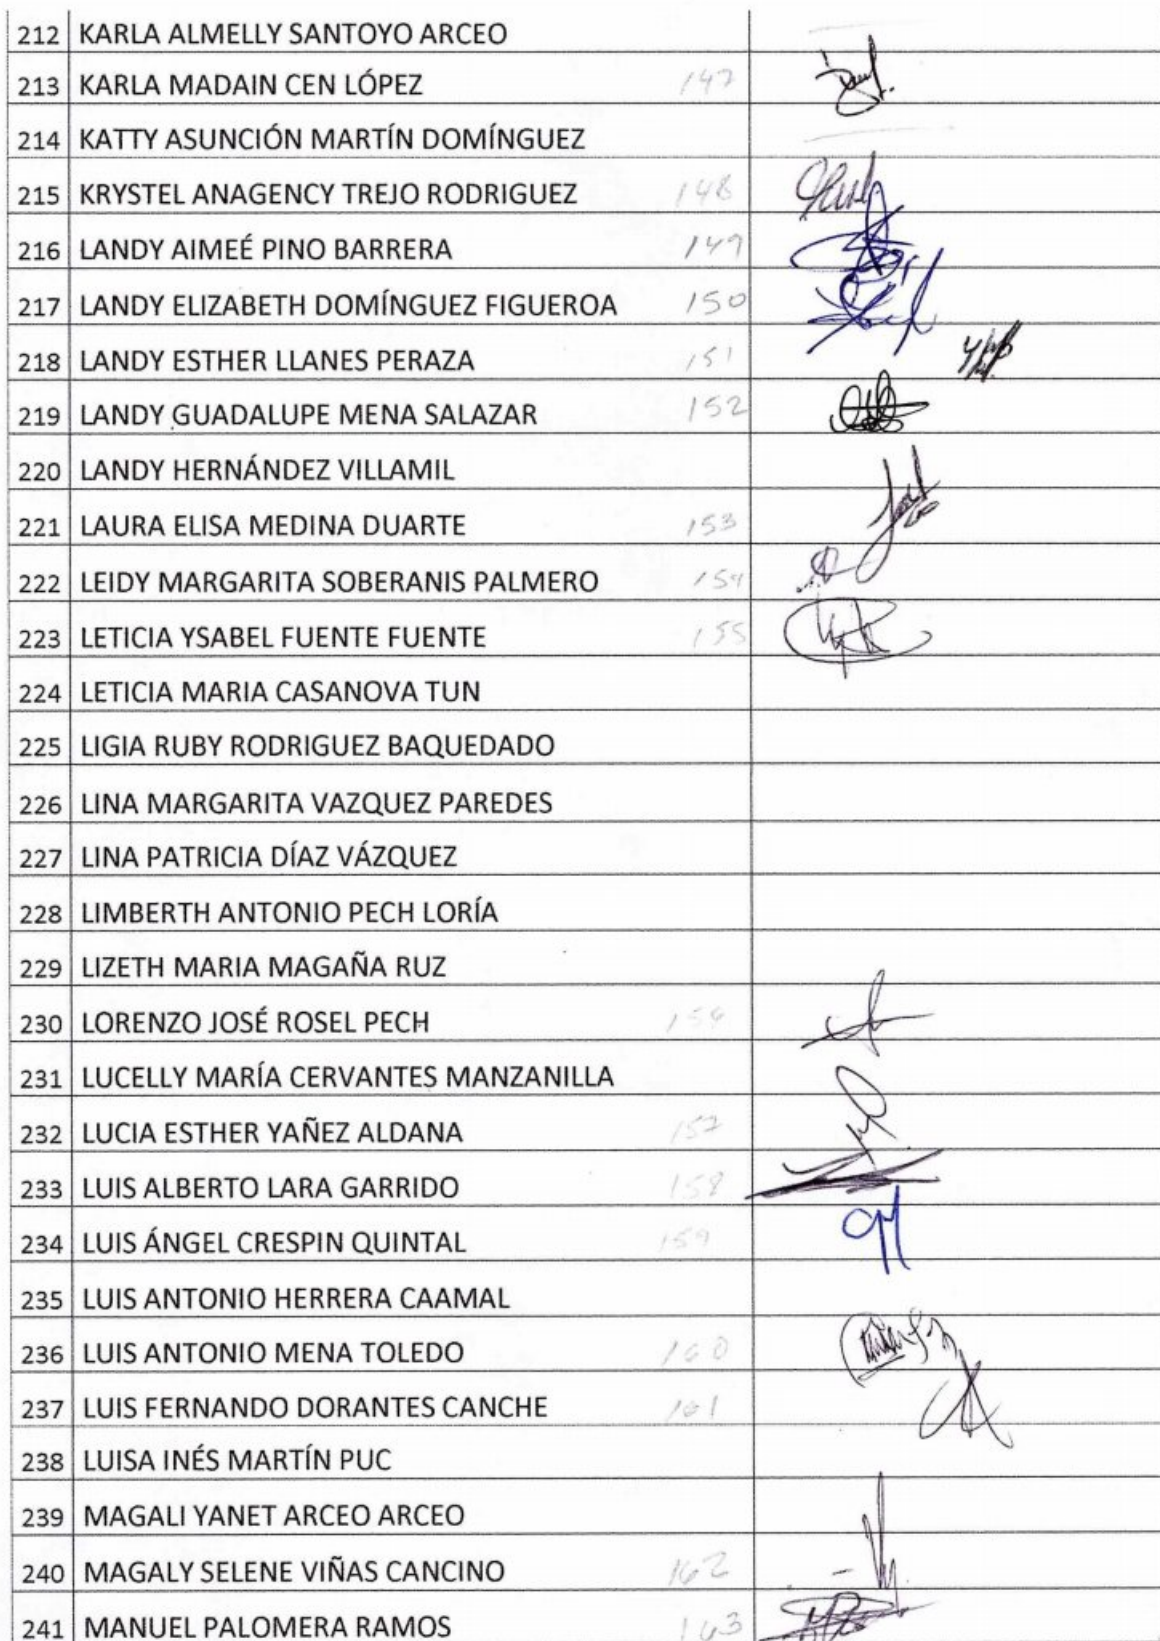 212 KARLA ALMELLY SANTOYO ARCEO
213 KARLA MADAIN CEN LÓPEZ 147
214 KATTY ASUNCIÓN MARTÍN DOMÍNGUEZ
215 KRYSTEL ANAGENCY TREJO RODRIGUEZ 148
216 LANDY AIMEÉ PINO BARRERA 149
217 LANDY ELIZABETH DOMÍNGUEZ FIGUEROA 150
218 LANDY ESTHER LLANES PERAZA 151
219 LANDY GUADALUPE MENA SALAZAR 152
220 LANDY HERNÁNDEZ VILLAMIL
221 LAURA ELISA MEDINA DUARTE 153
222 LEIDY MARGARITA SOBERANIS PALMERO 154
223 LETICIA YSABEL FUENTE FUENTE 155
224 LETICIA MARIA CASANOVA TUN
225 LIGIA RUBY RODRIGUEZ BAQUEDADO
226 LINA MARGARITA VAZQUEZ PAREDES
227 LINA PATRICIA DÍAZ VÁZQUEZ
228 LIMBERTH ANTONIO PECH LORÍA
229 LIZETH MARIA MAGAÑA RUZ
230 LORENZO JOSÉ ROSEL PECH 156
231 LUCELLY MARÍA CERVANTES MANZANILLA
232 LUCIA ESTHER YAÑEZ ALDANA 157
233 LUIS ALBERTO LARA GARRIDO 158
234 LUIS ÁNGEL CRESPIN QUINTAL 159
235 LUIS ANTONIO HERRERA CAAMAL
236 LUIS ANTONIO MENA TOLEDO 160
237 LUIS FERNANDO DORANTES CANCHE 161
238 LUISA INÉS MARTÍN PUC
239 MAGALI YANET ARCEO ARCEO
240 MAGALY SELENE VIÑAS CANCINO 162
241 MANUEL PALOMERA RAMOS 163